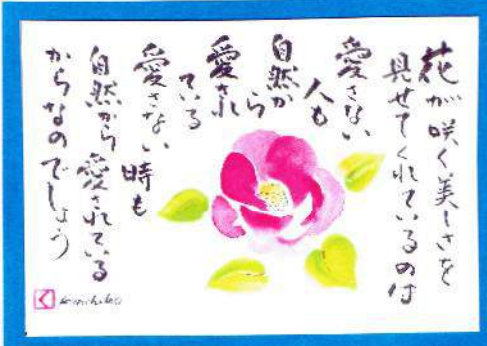 花が咲く美しさを
見せてくれているのは
愛さない
人も
自然か
ら
愛され
ている
愛さない時も
自然から愛されている
からなのでしょう
く